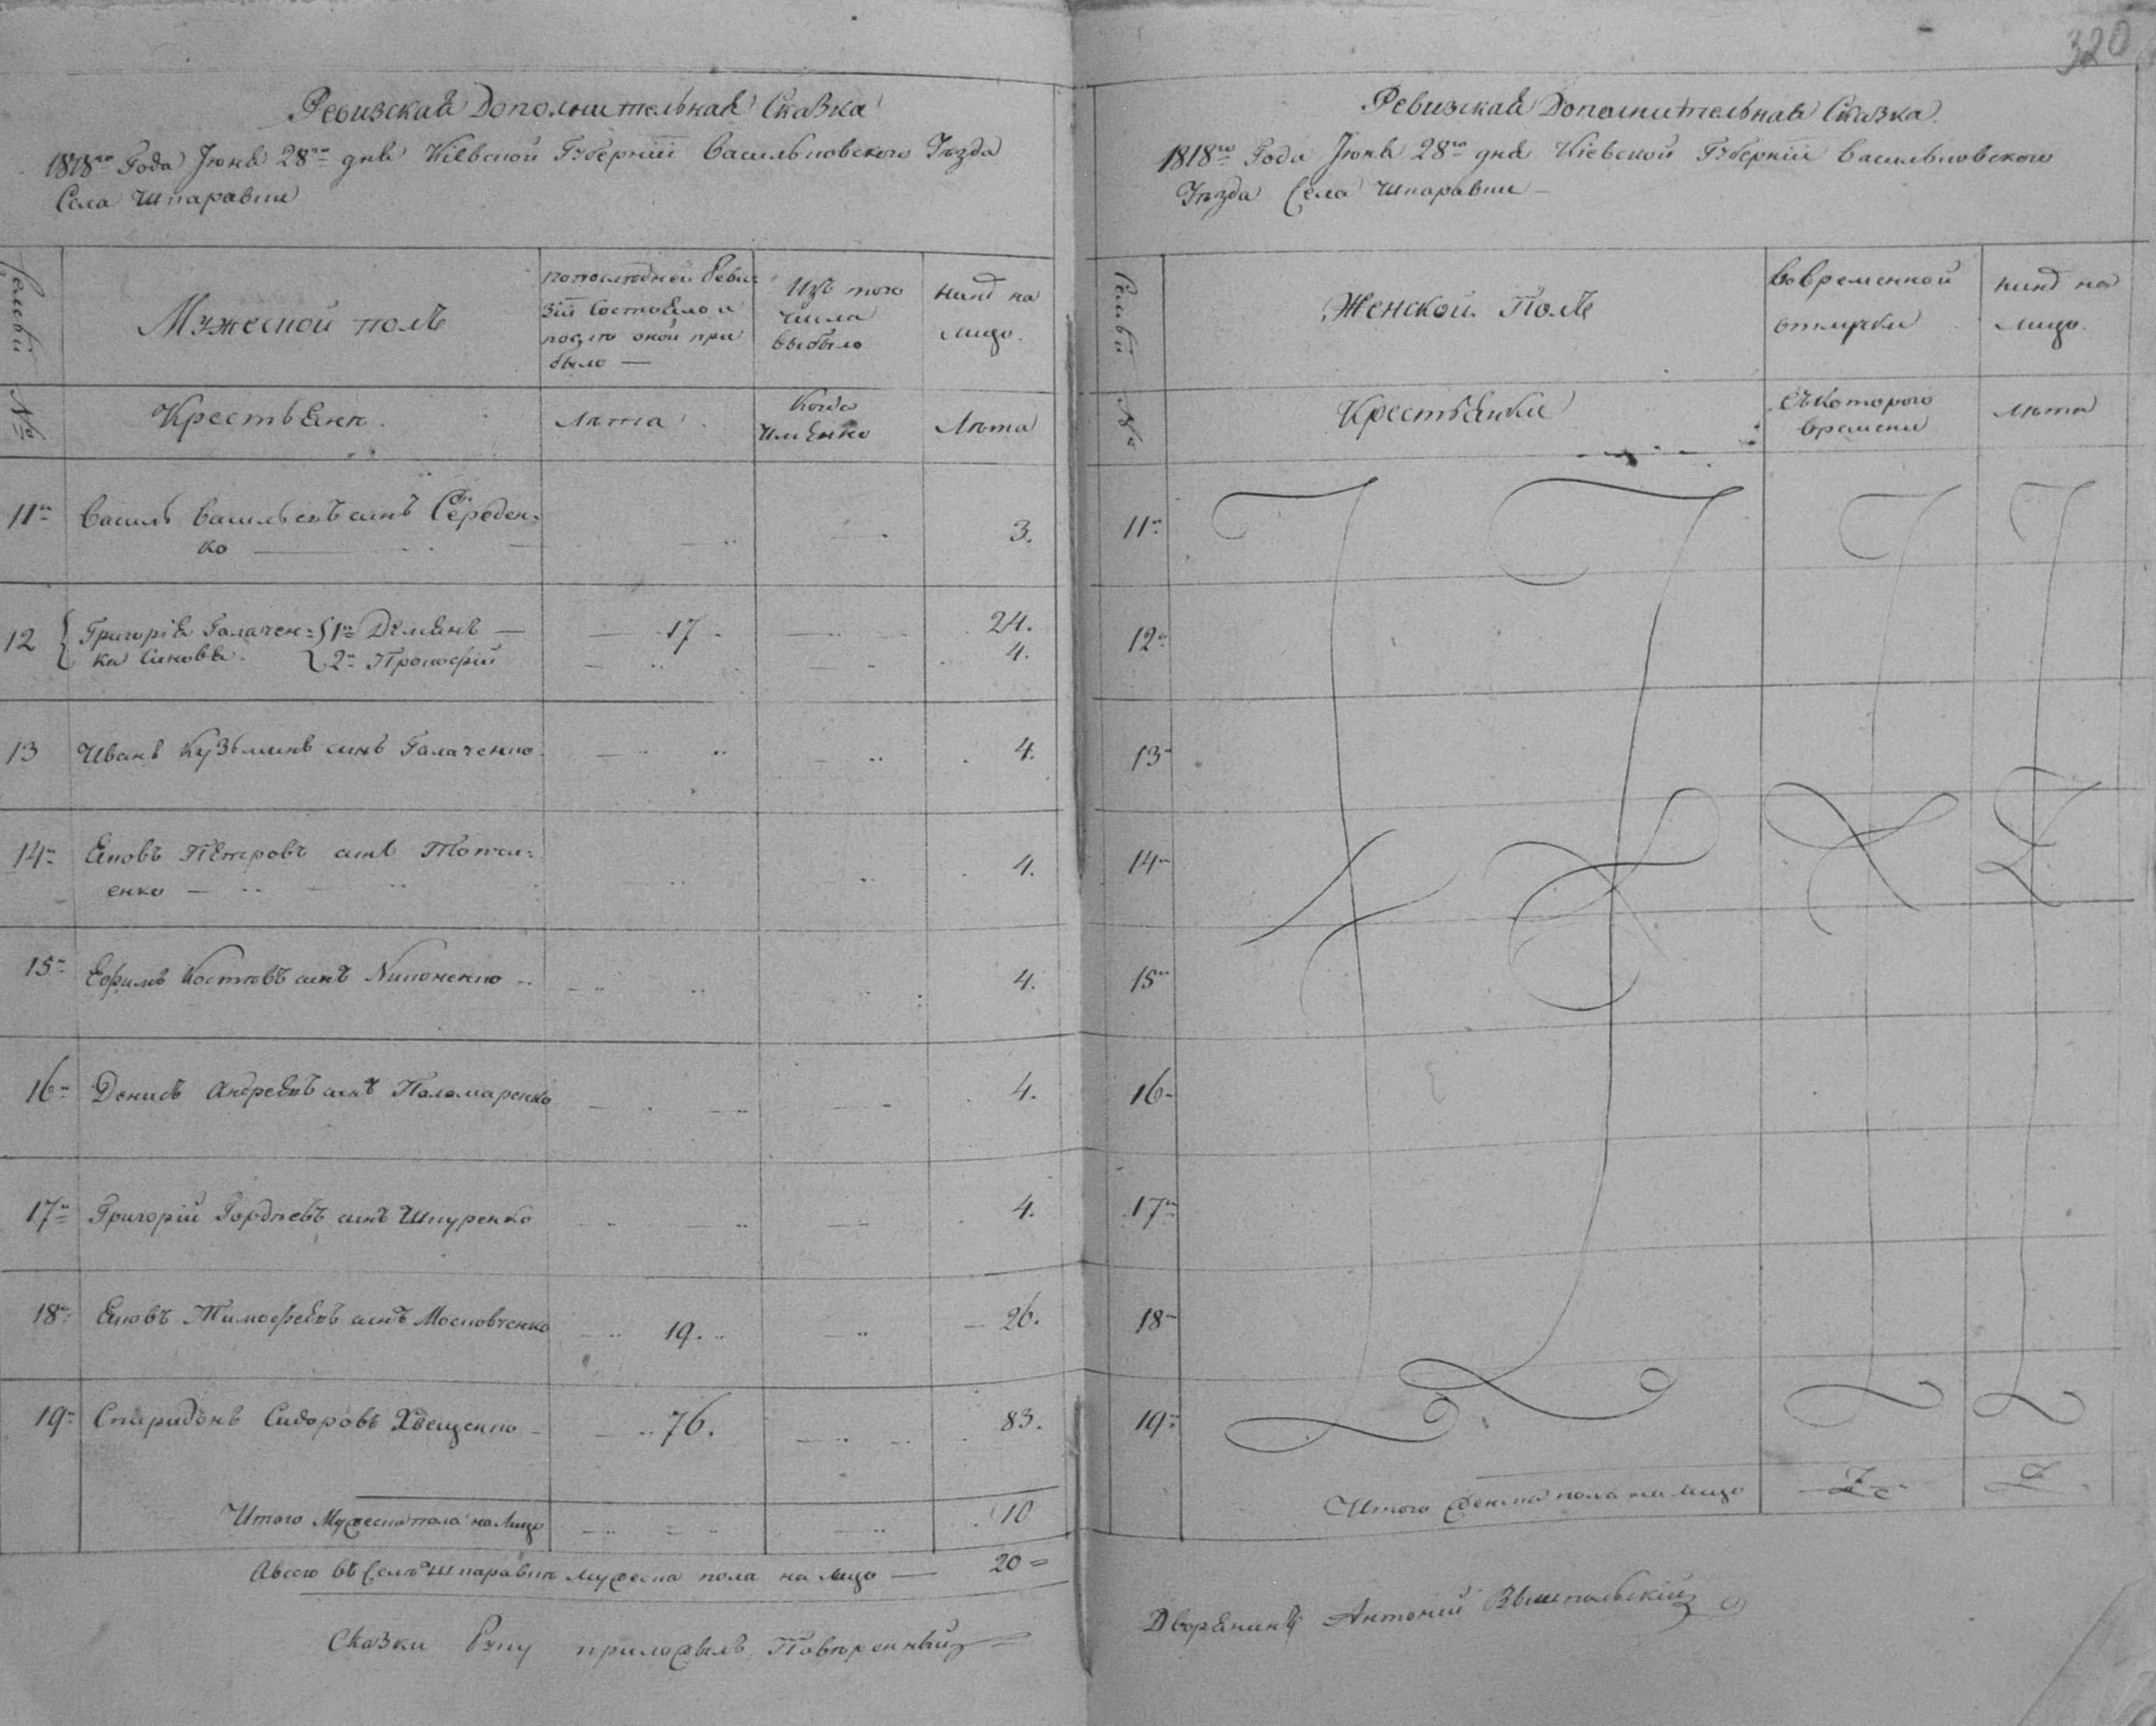 Ревизская Дополнительная Сказка
1818го Года Июня 28го дня Киевской Губернии Васильковского Уезда
Села Шпаравки
Семьи №
Мужеской полъ
по последней Реви
зіи состояло и
после оной при
было —
Изъ того
числа
выбыло
ныне на
лицо.
Крестьяне.
Лета
Когда
имянно
Лета
11. Василь Васильевъ синъ Середен-
ко 3.
12 Григорія Галаченка синовья. 1й Демянъ — 17 24.
2й Прокофій 4.
13 Иванъ Кузьминъ синъ Галаченко. 4.
14. Яковъ Петровъ синъ Потал-
енко 4.
15. Ефимъ Костювъ синъ Никоненко 4.
16. Денисъ Андреевъ синъ Паламаренко 4.
17. Григорій Гордеевъ синъ Шпуренко 4.
18. Яковъ Тимофеевъ синъ Московченко 19. 26.
19. Спиридонъ Сидоровъ Хвещенко 76. 83.
Итого Мужеска пола на Лицо 10
А всего въ Селе Шпаравки мужеска пола на лицо — 20
Сказки Руку приложилъ Поверенный
320
Ревизская Дополнительная Сказка.
1818го Года Июня 28го дня Киевской Губерніи Васильковского
Уезда Села Шпаравки —
Семьи №
Женской Полъ
Во временной
отлучки
ныне на
лицо.
Крестьянки
Съ которого
времени
лета
11.
12.
13.
14.
15.
16.
17.
18.
19.
Итого женска пола на лицо
Дворянинъ Антоній